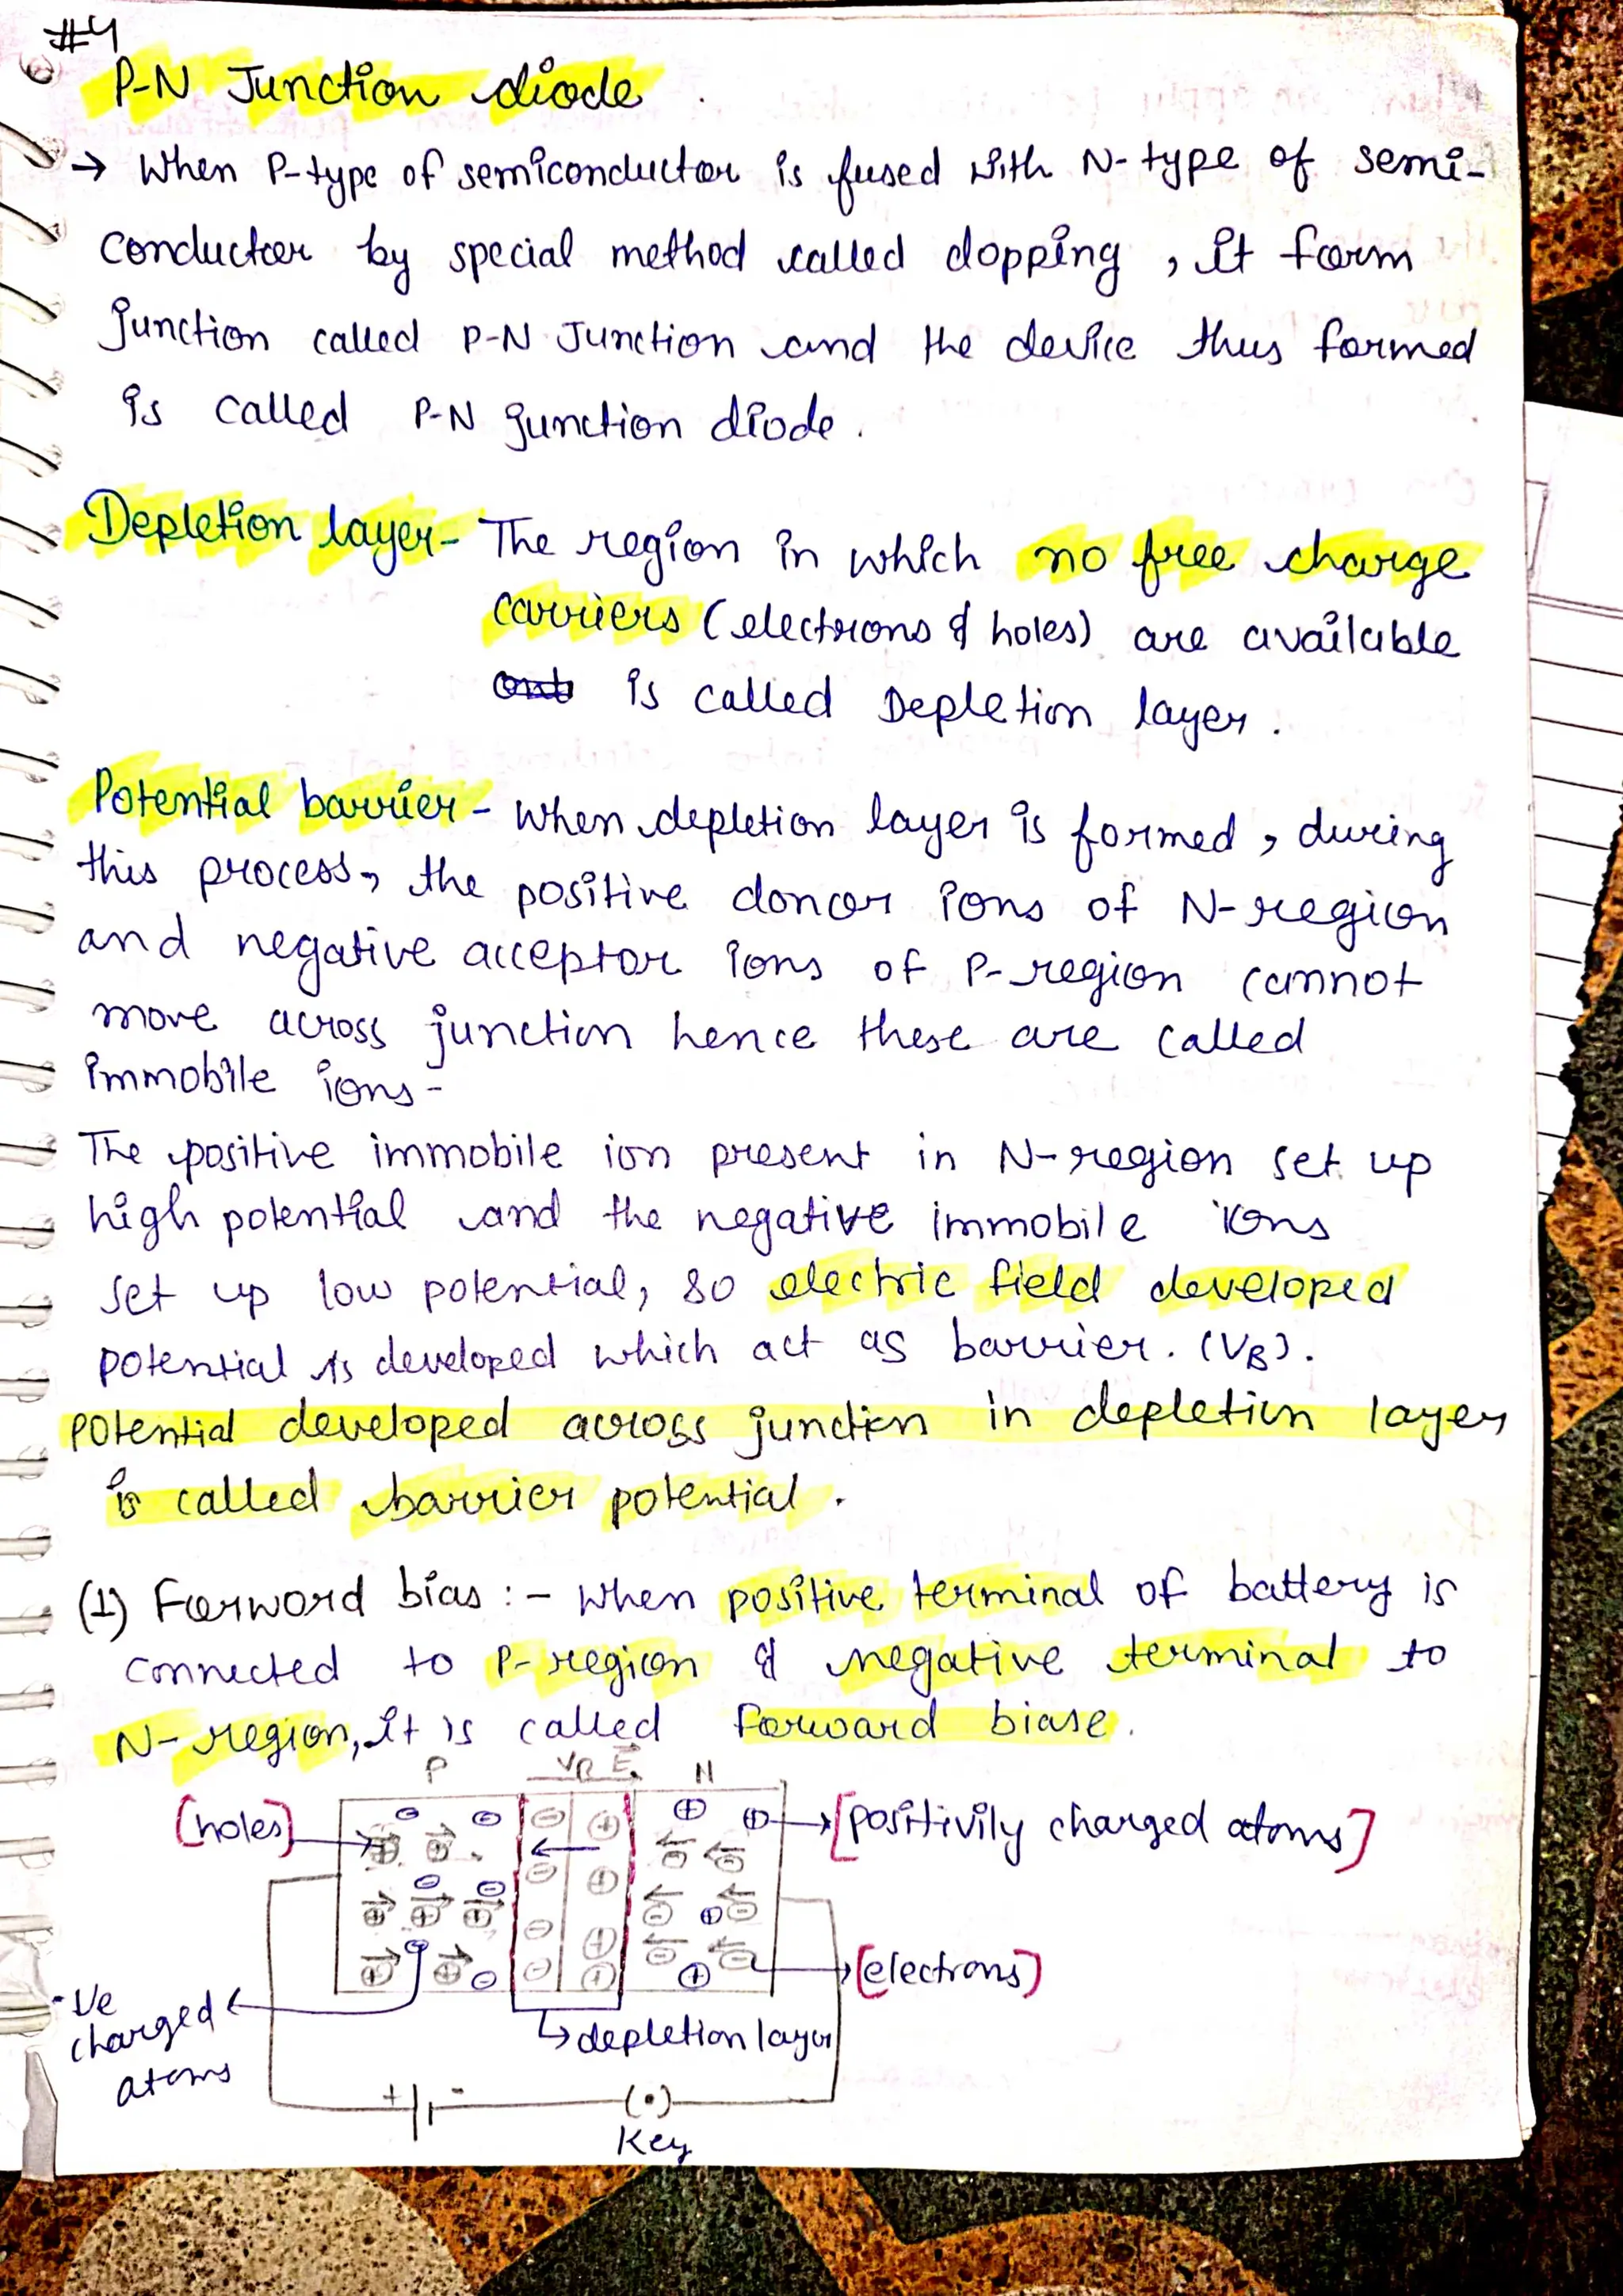 #4
P-N Junction diode
→ When P-type of semiconductor is fused with N-type of semi-
conductor by special method called dopping, it form
junction called P-N Junction and the device thus formed
is called P-N junction diode.
Depletion layer- The region in which no free charge
carriers (electrons & holes) are available
is called Depletion layer.
Potential barrier - When depletion layer is formed, during
this process, the positive donor ions of N-region
and negative acceptor ions of P-region cannot
move across junction hence these are called
immobile ions-
The positive immobile ion present in N-region set up
high potential and the negative immobile ions
set up low potential, so electric field developed
potential is developed which act as barrier. (VB).
potential developed across junction in depletion layer
is called barrier potential.
(1) Forword bias :- When positive terminal of battery is
connected to P-region & negative terminal to
N-region, it is called forward biase.
P VB E N
[holes]
[positivily charged atoms]
[electrons]
-Ve
charged
atoms
depletion layer
+ -
(•)
Key